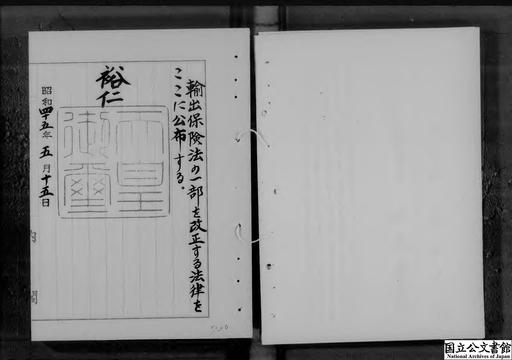 輸出保険法の一部を改正する法律を
ここに公布する。
裕仁
天皇
御璽
昭和四十五年五月十五日
内閣
国立公文書館
National Archives of Japan